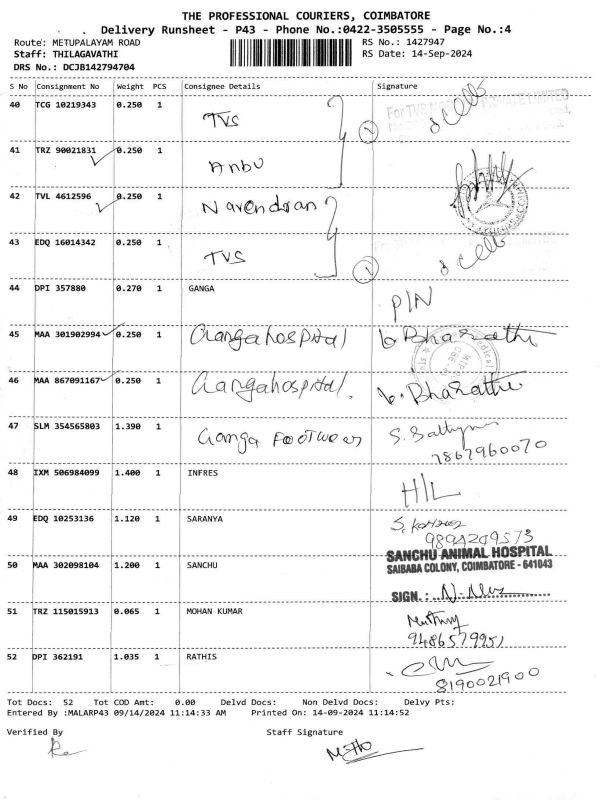 THE PROFESSIONAL COURIERS, COIMBATORE
Delivery Runsheet - P43 - Phone No.:0422-3505555 - Page No.:4
Route: METUPALAYAM ROAD RS No.: 1427947
Staff: THILAGAVATHI RS Date: 14-Sep-2024
DRS No.: DCJB142794704
S No Consignment No Weight PCS Consignee Details Signature
40 TCG 10219343 0.250 1 TVS 2 cells
41 TRZ 90021831 0.250 1 Anbu
42 TVL 4612596 0.250 1 Narendran
43 EDQ 16014342 0.250 1 TVS 2 cells
44 DPI 357880 0.270 1 GANGA PIN
45 MAA 301902994 0.250 1 Gangahospital b. Bharathi
46 MAA 867091167 0.250 1 Gangahospital. b. Bharathi
47 SLM 354565803 1.390 1 Ganga Footwear S. Sathya
7867960070
48 IXM 506984099 1.400 1 INFRES H/L
49 EDQ 10253136 1.120 1 SARANYA
9894209573
50 MAA 302098104 1.200 1 SANCHU SANCHU ANIMAL HOSPITAL
SAIBABA COLONY, COIMBATORE - 641043
SIGN. :
51 TRZ 115015913 0.065 1 MOHAN KUMAR
9486579951
52 DPI 362191 1.035 1 RATHIS
8190021900
Tot Docs: 52 Tot COD Amt: 0.00 Delvd Docs: Non Delvd Docs: Delvy Pts:
Entered By :MALARP43 09/14/2024 11:14:33 AM Printed On: 14-09-2024 11:14:52
Verified By Staff Signature